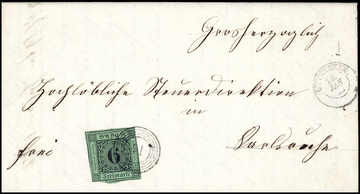 Grosherzoglich
Hochlöbliche Steuerdirektion
in
frei
Carlsruhe
6